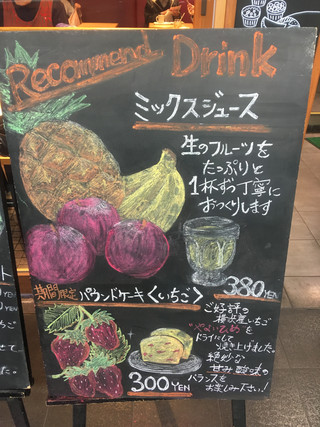 Recommend Drink
ミックスジュース
生のフルーツを
たっぷりと
1杯ずつ丁寧に
おつくりします
380YEN
期間限定 パウンドケーキ〈いちご〉
ご好評の
横浜産いちご
を
ドライにして
焼き上げました。
絶妙な
甘み酸味の
バランスを
お楽しみ下さい!
300YEN